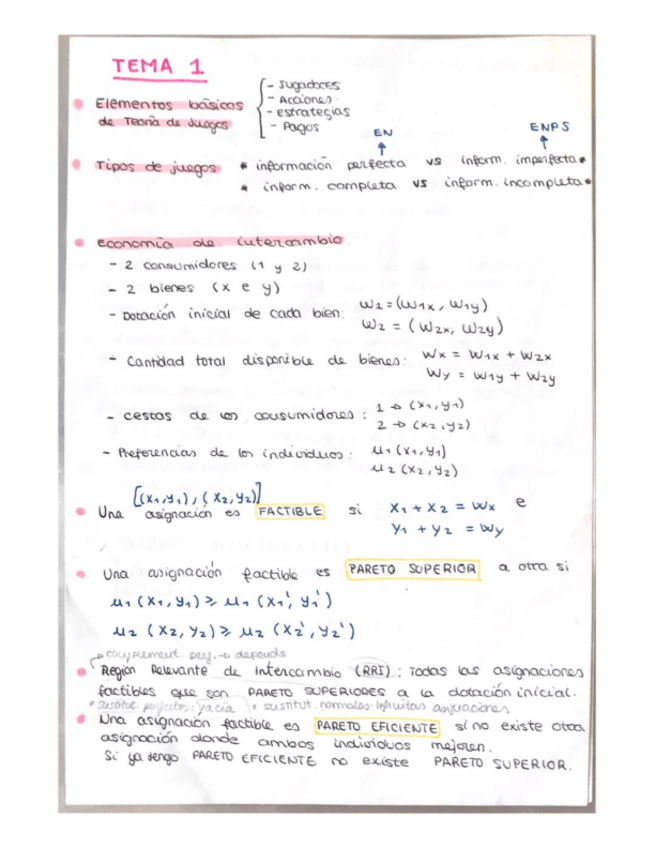 TEMA 1
Elementos básicos de Teoría de Juegos
- Jugadores
- Acciones.
- estrategias
- Pagos
EN
ENPS
Tipos de juegos * información perfecta vs inform. imperfecta *
* inform. completa vs inform. incompleta *
Economía de intercambio
- 2 consumidores (1 y 2)
- 2 bienes (x e y)
- Dotación inicial de cada bien: W1 = (W1x, W1y)
W2 = (W2x, W2y)
- Cantidad total disponible de bienes: Wx = W1x + W2x
Wy = W1y + W2y
- cestas de los consumidores: 1 → (x1, y1)
2 → (x2, y2)
- Preferencias de los individuos: u1 (x1, y1)
u2 (x2, y2)
[(x1, y1), (x2, y2)]
Una asignación es FACTIBLE si x1 + x2 = Wx e
y1 + y2 = Wy
Una asignación factible es PARETO SUPERIOR a otra si
u1 (x1, y1) ≥ u1 (x1', y1')
u2 (x2, y2) ≥ u2 (x2', y2')
complement. perf. → depende
Región Relevante de Intercambio (RRI): Todas las asignaciones
factibles que son PARETO SUPERIORES a la dotación inicial.
* sustitut. perfectos: vacía * sustitut. normales: infinitas asignaciones
Una asignación factible es PARETO EFICIENTE si no existe otra
asignación donde ambos individuos mejoren.
Si ya tengo PARETO EFICIENTE no existe PARETO SUPERIOR.